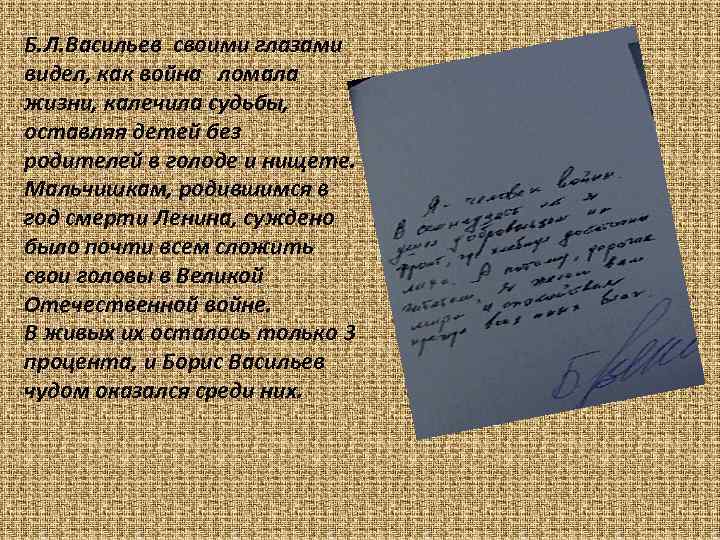 Б.Л.Васильев своими глазами
видел, как война ломала
жизни, калечила судьбы,
оставляя детей без
родителей в голоде и нищете.
Мальчишкам, родившимся в
год смерти Ленина, суждено
было почти всем сложить
свои головы в Великой
Отечественной войне.
В живых их осталось только 3
процента, и Борис Васильев
чудом оказался среди них.
Я - человек войны.
В семнадцать лет я
ушел добровольцем на
фронт, где хлебнул достаточно
лиха. А потому, дорогие
читатели, я желаю вам
мира и спокойствия
прежде всех иных благ.
Б